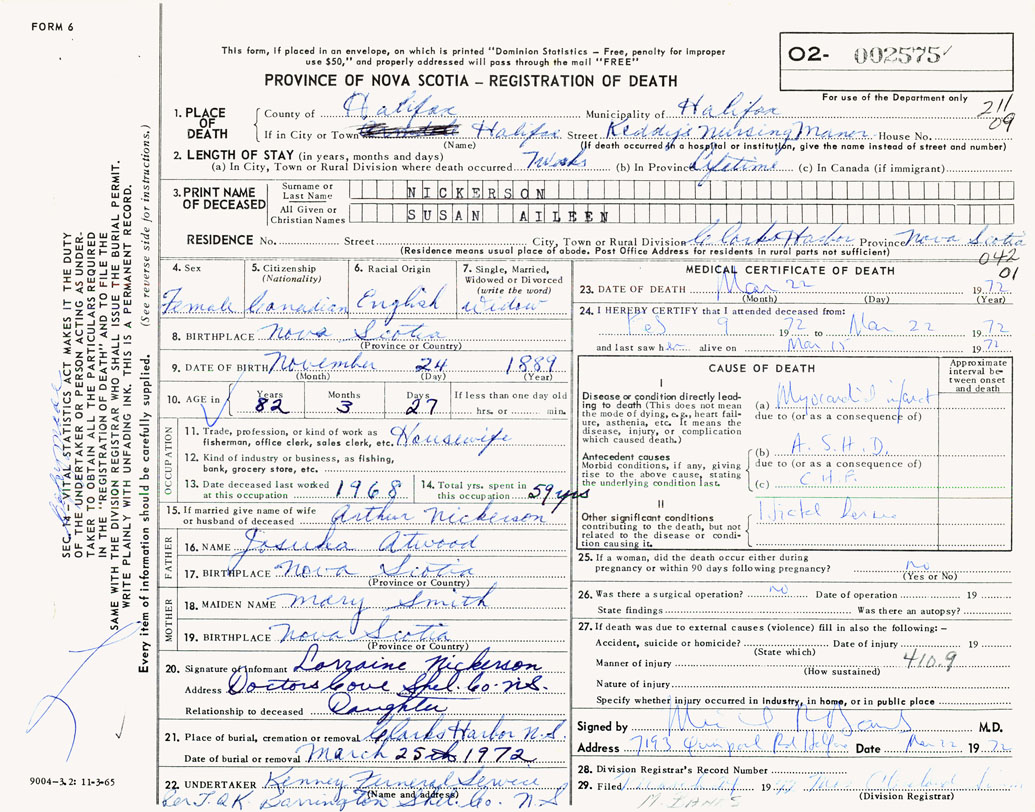 FORM 6
This form, if placed in an envelope, on which is printed "Dominion Statistics – Free, penalty for improper
use $50," and properly addressed will pass through the mail "FREE"
PROVINCE OF NOVA SCOTIA – REGISTRATION OF DEATH
02- 002575
For use of the Department only
211
09
1. PLACE OF DEATH
County of Halifax Municipality of Halifax
If in City or Town Halifax Street Keddy's Nursing Manor House No.
(Name) (If death occurred in a hospital or institution, give the name instead of street and number)
2. LENGTH OF STAY (in years, months and days)
(a) In City, Town or Rural Division where death occurred (b) In Province Lifetime (c) In Canada (if immigrant)
3. PRINT NAME OF DECEASED
Surname or Last Name NICKERSON
All Given or Christian Names SUSAN AILEEN
RESIDENCE No. Street City, Town or Rural Division Clarks Harbor Province Nova Scotia
(Residence means usual place of abode. Post Office Address for residents in rural parts not sufficient)
042
01
4. Sex Female
5. Citizenship (Nationality) Canadian
6. Racial Origin English
7. Single, Married, Widowed or Divorced (write the word) Widow
8. BIRTHPLACE Nova Scotia
(Province or Country)
9. DATE OF BIRTH November 24 1889
(Month) (Day) (Year)
10. AGE in Years 82 Months 3 Days 27 If less than one day old hrs. or min.
OCCUPATION
11. Trade, profession, or kind of work as fisherman, office clerk, sales clerk, etc. Housewife
12. Kind of industry or business, as fishing, bank, grocery store, etc.
13. Date deceased last worked at this occupation 1968
14. Total yrs. spent in this occupation 59 yrs
15. If married give name of wife or husband of deceased Arthur Nickerson
FATHER
16. NAME Josuha Atwood
17. BIRTHPLACE Nova Scotia
(Province or Country)
MOTHER
18. MAIDEN NAME Mary Smith
19. BIRTHPLACE Nova Scotia
(Province or Country)
20. Signature of informant Lorraine Nickerson
Address Doctors Cove Shel. Co. N.S.
Relationship to deceased Daughter
21. Place of burial, cremation or removal Clarks Harbor N.S.
Date of burial or removal March 25th 1972
22. UNDERTAKER Kenney Funeral Service
(Name and address)
Barrington Shel. Co. N.S
MEDICAL CERTIFICATE OF DEATH
23. DATE OF DEATH Mar 22 1972
(Month) (Day) (Year)
24. I HEREBY CERTIFY that I attended deceased from:
Feb 9 1972 to Mar 22 1972
and last saw her alive on Mar 15 1972
CAUSE OF DEATH
Approximate interval between onset and death
I
Disease or condition directly leading to death (This does not mean mode of dying, e.g., heart failure, asthenia, etc. It means the disease, injury, or complication which caused death.)
(a) Myocardial infarct
due to (or as a consequence of)
Antecedent causes
Morbid conditions, if any, giving rise to the above cause, stating the underlying condition last.
(b) A.S.H.D.
due to (or as a consequence of)
(c) C.H.F.
II
Other significant conditions contributing to the death, but not related to the disease or condition causing it.
25. If a woman, did the death occur either during pregnancy or within 90 days following pregnancy? no
(Yes or No)
26. Was there a surgical operation? no Date of operation 19
State findings Was there an autopsy?
27. If death was due to external causes (violence) fill in also the following: –
Accident, suicide or homicide? Date of injury 19
(State which)
Manner of injury 410.9
(How sustained)
Nature of injury
Specify whether injury occurred in industry, in home, or in public place
Signed by M.D.
Address 7193 Quinpool Rd Halifax Date Mar 22 1972
28. Division Registrar's Record Number
29. Filed 19
(Division Registrar)
SEC. 14 – VITAL STATISTICS ACT MAKES IT THE DUTY
OF THE UNDERTAKER OR PERSON ACTING AS UNDER-
TAKER TO OBTAIN ALL THE PARTICULARS REQUIRED
IN THE "REGISTRATION OF DEATH" AND TO FILE THE
SAME WITH THE DIVISION REGISTRAR WHO SHALL ISSUE THE BURIAL PERMIT.
WRITE PLAINLY WITH UNFADING INK. THIS IS A PERMANENT RECORD.
Every item of information should be carefully supplied. (See reverse side for instructions.)
9004-3.2: 11-3-65